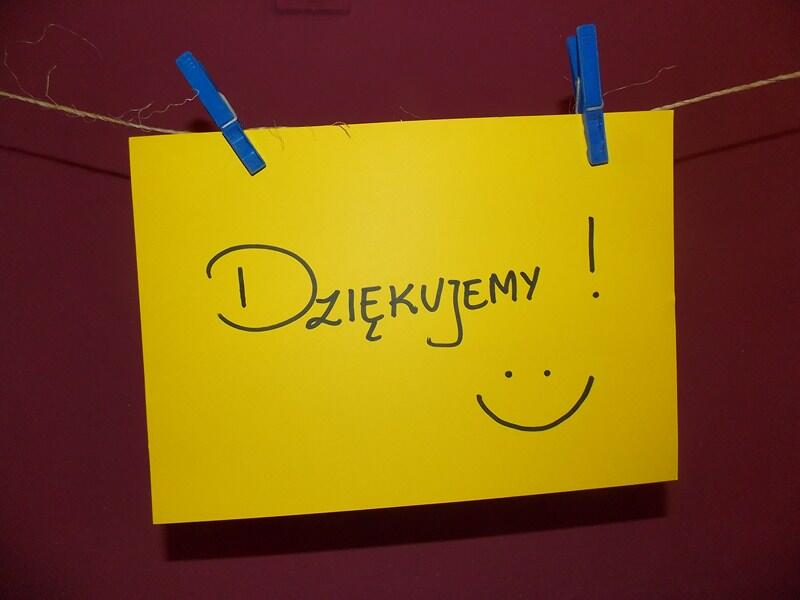 Dziękujemy !